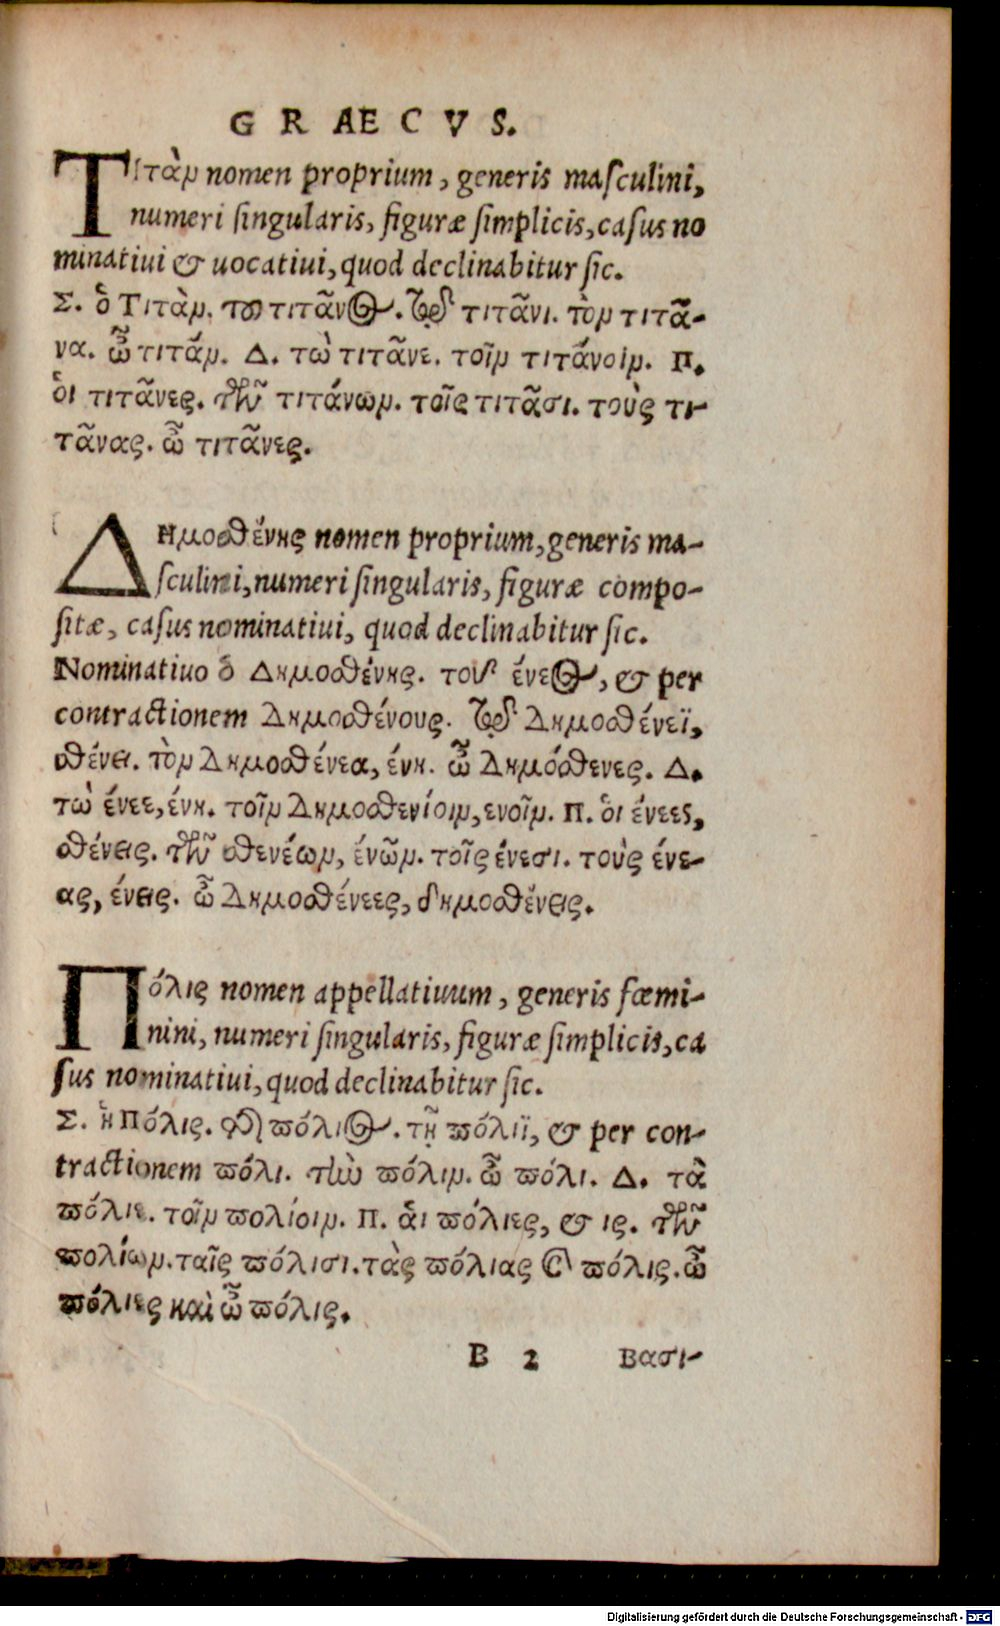 GRAECVS.
Τιτὰν nomen proprium, generis masculini,
numeri singularis, figuræ simplicis, casus no
minatiui & uocatiui, quod declinabitur sic.
Σ. ὁ Τιτὰν. τοῦ τιτᾶνος. τῷ τιτᾶνι. τὸν τιτᾶ-
να. ὦ τιτάν. Δ. τὼ τιτᾶνε. τοῖν τιτάνοιν. Π.
ὁι τιτᾶνες. τῶν τιτάνων. τοῖς τιτᾶσι. τοὺς τι-
τᾶνας. ὦ τιτᾶνες.
Δημοσθένης nomen proprium, generis ma-
sculini, numeri singularis, figuræ compo-
sitæ, casus nominatiui, quod declinabitur sic.
Nominatiuo ὁ Δημοσθένης. τοῦ ένεος, & per
contractionem Δημοσθένους. τῷ Δημοσθένεϊ,
σθένει. τὸν Δημοσθένεα, ένη. ὦ Δημόσθενες. Δ.
τὼ ένεε, ένη. τοῖν Δημοσθενέοιν, ενοῖν. Π. ὁι ένεες,
σθένεις. τῶν σθενέων, ένῶν. τοῖς ένεσι. τοὺς ένε-
ας, ένεις. ὦ Δημοσθένεες, δημοσθένεις.
Πόλις nomen appellatiuum, generis fœmi-
nini, numeri singularis, figuræ simplicis, ca
sus nominatiui, quod declinabitur sic.
Σ. ἡ Πόλις. τῆς πόλιος. τῇ πόλιϊ, & per con-
tractionem πόλι. τὴν πόλιν. ὦ πόλι. Δ. τὰ
πόλιε. ταῖν πολίοιν. Π. ἁι πόλιες, & ις. τῶν
πολίων. ταῖς πόλισι. τὰς πόλιας καὶ πόλις. ὦ
πόλιες καὶ ὦ πόλις.
B 2 Βασι-
Digitalisierung gefördert durch die Deutsche Forschungsgemeinschaft - DFG